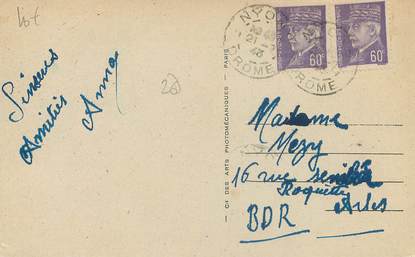 Lot
NYO
21
43
DROME
60c
60c
Sincères
Amitiés
Anna
28
Cie DES ARTS PHOTOMÉCANIQUES — PARIS
Madame
Mezy
16 rue
Roquette
Arles
BDR